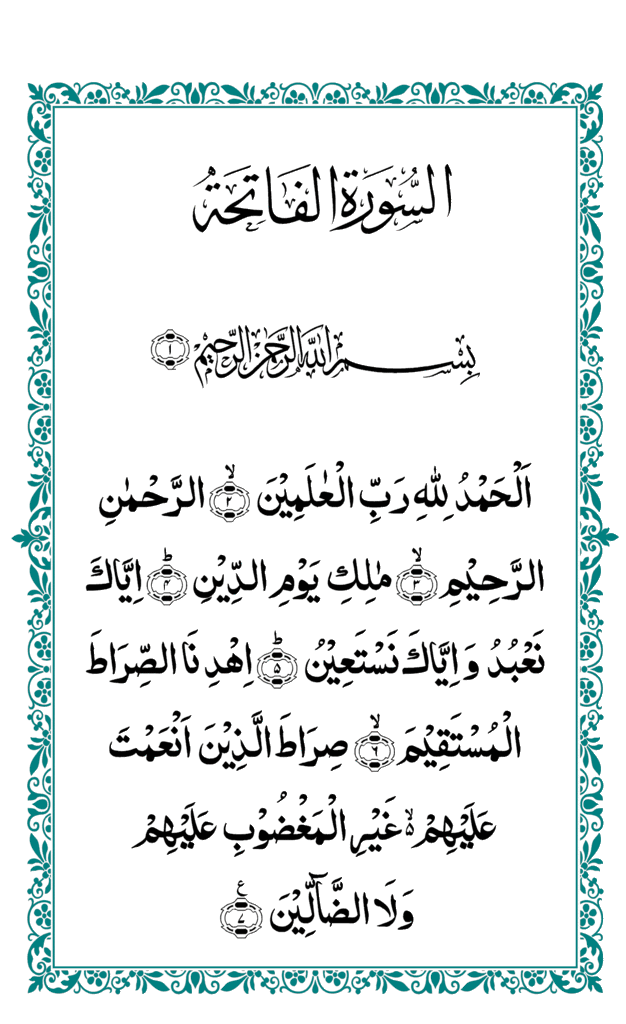 السُّورَةُ الفَاتِحَةُ
بِسْمِ اللهِ الرَّحْمٰنِ الرَّحِيْمِ ۝۱
اَلْحَمْدُ لِلّٰهِ رَبِّ الْعٰلَمِيْنَ ۙ۝۲ الرَّحْمٰنِ
الرَّحِيْمِ ۙ۝۳ مٰلِكِ يَوْمِ الدِّيْنِ ؕ۝۴ اِيَّاكَ
نَعْبُدُ وَاِيَّاكَ نَسْتَعِيْنُ ؕ۝۵ اِهْدِنَا الصِّرَاطَ
الْمُسْتَقِيْمَ ۙ۝۶ صِرَاطَ الَّذِيْنَ اَنْعَمْتَ
عَلَيْهِمْ ۙ غَيْرِ الْمَغْضُوْبِ عَلَيْهِمْ
وَلَا الضَّآلِّيْنَ ۝۷ ع